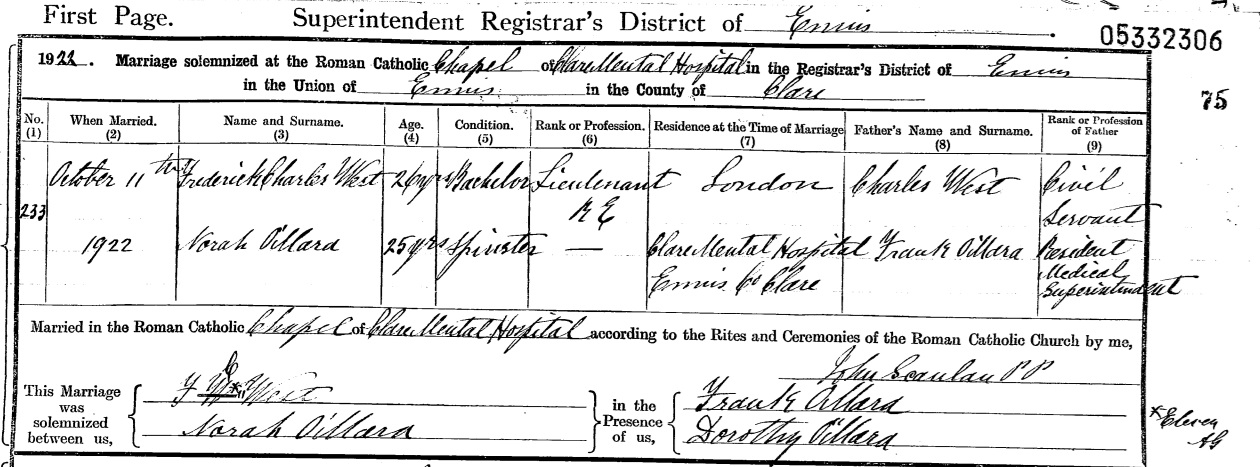 First Page. Superintendent Registrar's District of Ennis.
05332306
1922. Marriage solemnized at the Roman Catholic Chapel of Clare Mental Hospital in the Registrar's District of Ennis
in the Union of Ennis in the County of Clare
75
No. (1) When Married. (2) Name and Surname. (3) Age. (4) Condition. (5) Rank or Profession. (6) Residence at the Time of Marriage (7) Father's Name and Surname. (8) Rank or Profession of Father (9)
October 11th Frederick Charles West 26 yrs Bachelor Lieutenant R E London Charles West Civil Servant
233
1922 Norah O'Mara 25 yrs Spinster — Clare Mental Hospital Ennis Co Clare Frank O'Mara Resident Medical Superintendent
Married in the Roman Catholic Chapel of Clare Mental Hospital according to the Rites and Ceremonies of the Roman Catholic Church by me,
John Scanlan P P
This Marriage was solemnized between us,
F C West
Norah O'Mara
in the Presence of us,
Frank O'Mara
Dorothy O'Mara
*Eleven
AG